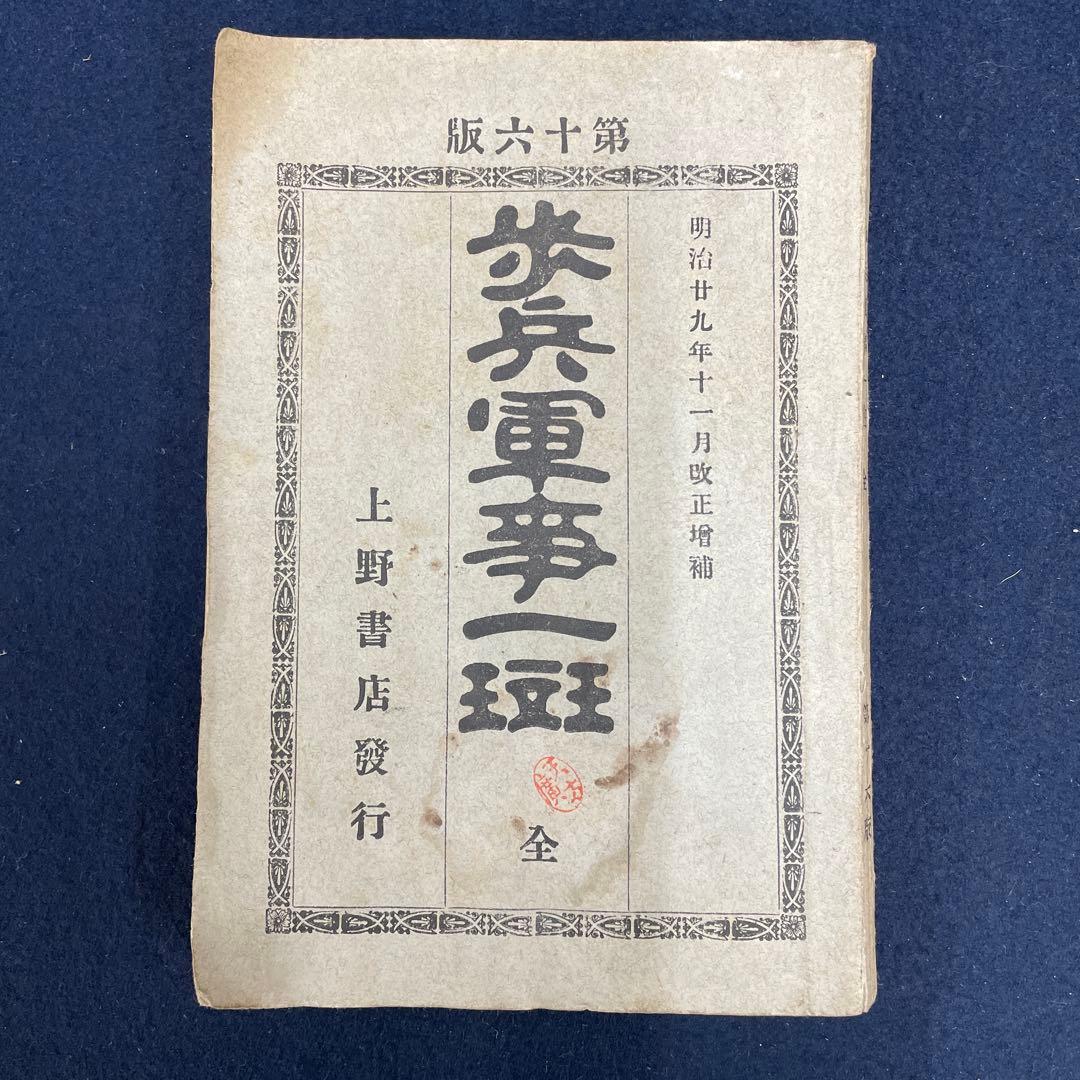 第十六版
明治廿九年十一月改正增補
步兵軍事一斑
全
上野書店發行